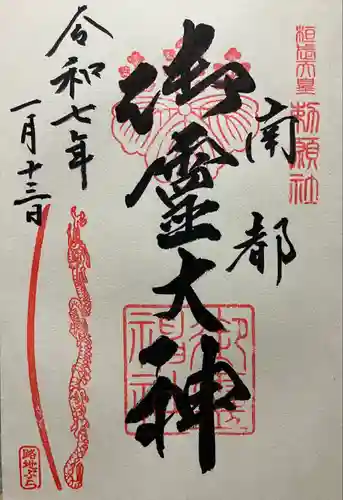 桓武天皇勅願社
南都
御霊大神
御霊神社
令和七年
一月十三日